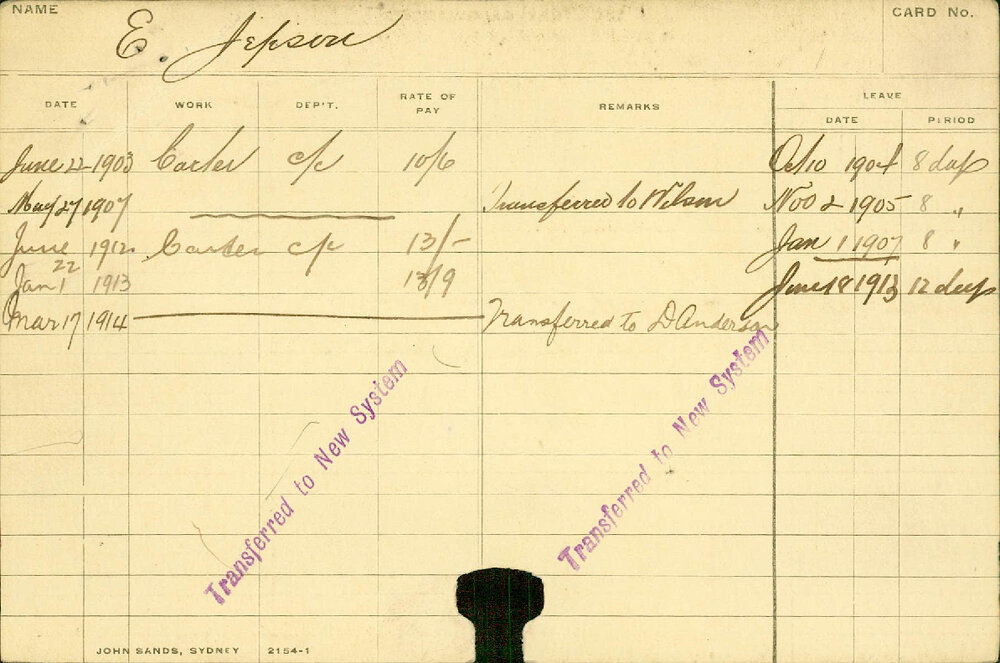 NAME E. Jepson CARD No.
LEAVE
DATE WORK DEP'T. RATE OF PAY REMARKS DATE PERIOD
June 22 1903 Carter c/c 10/6 Oct 10 1904 8 days
May 27 1907 Transferred to Wilson Nov 2 1905 8 "
June 22 1912 Carter c/c 13/- Jan 1 1907 8 "
Jan 1 1913 13/9 June 18 1913 12 days
Mar 17 1914 Transferred to D Anderson
Transferred to New System
Transferred to New System
JOHN SANDS, SYDNEY 2154-1